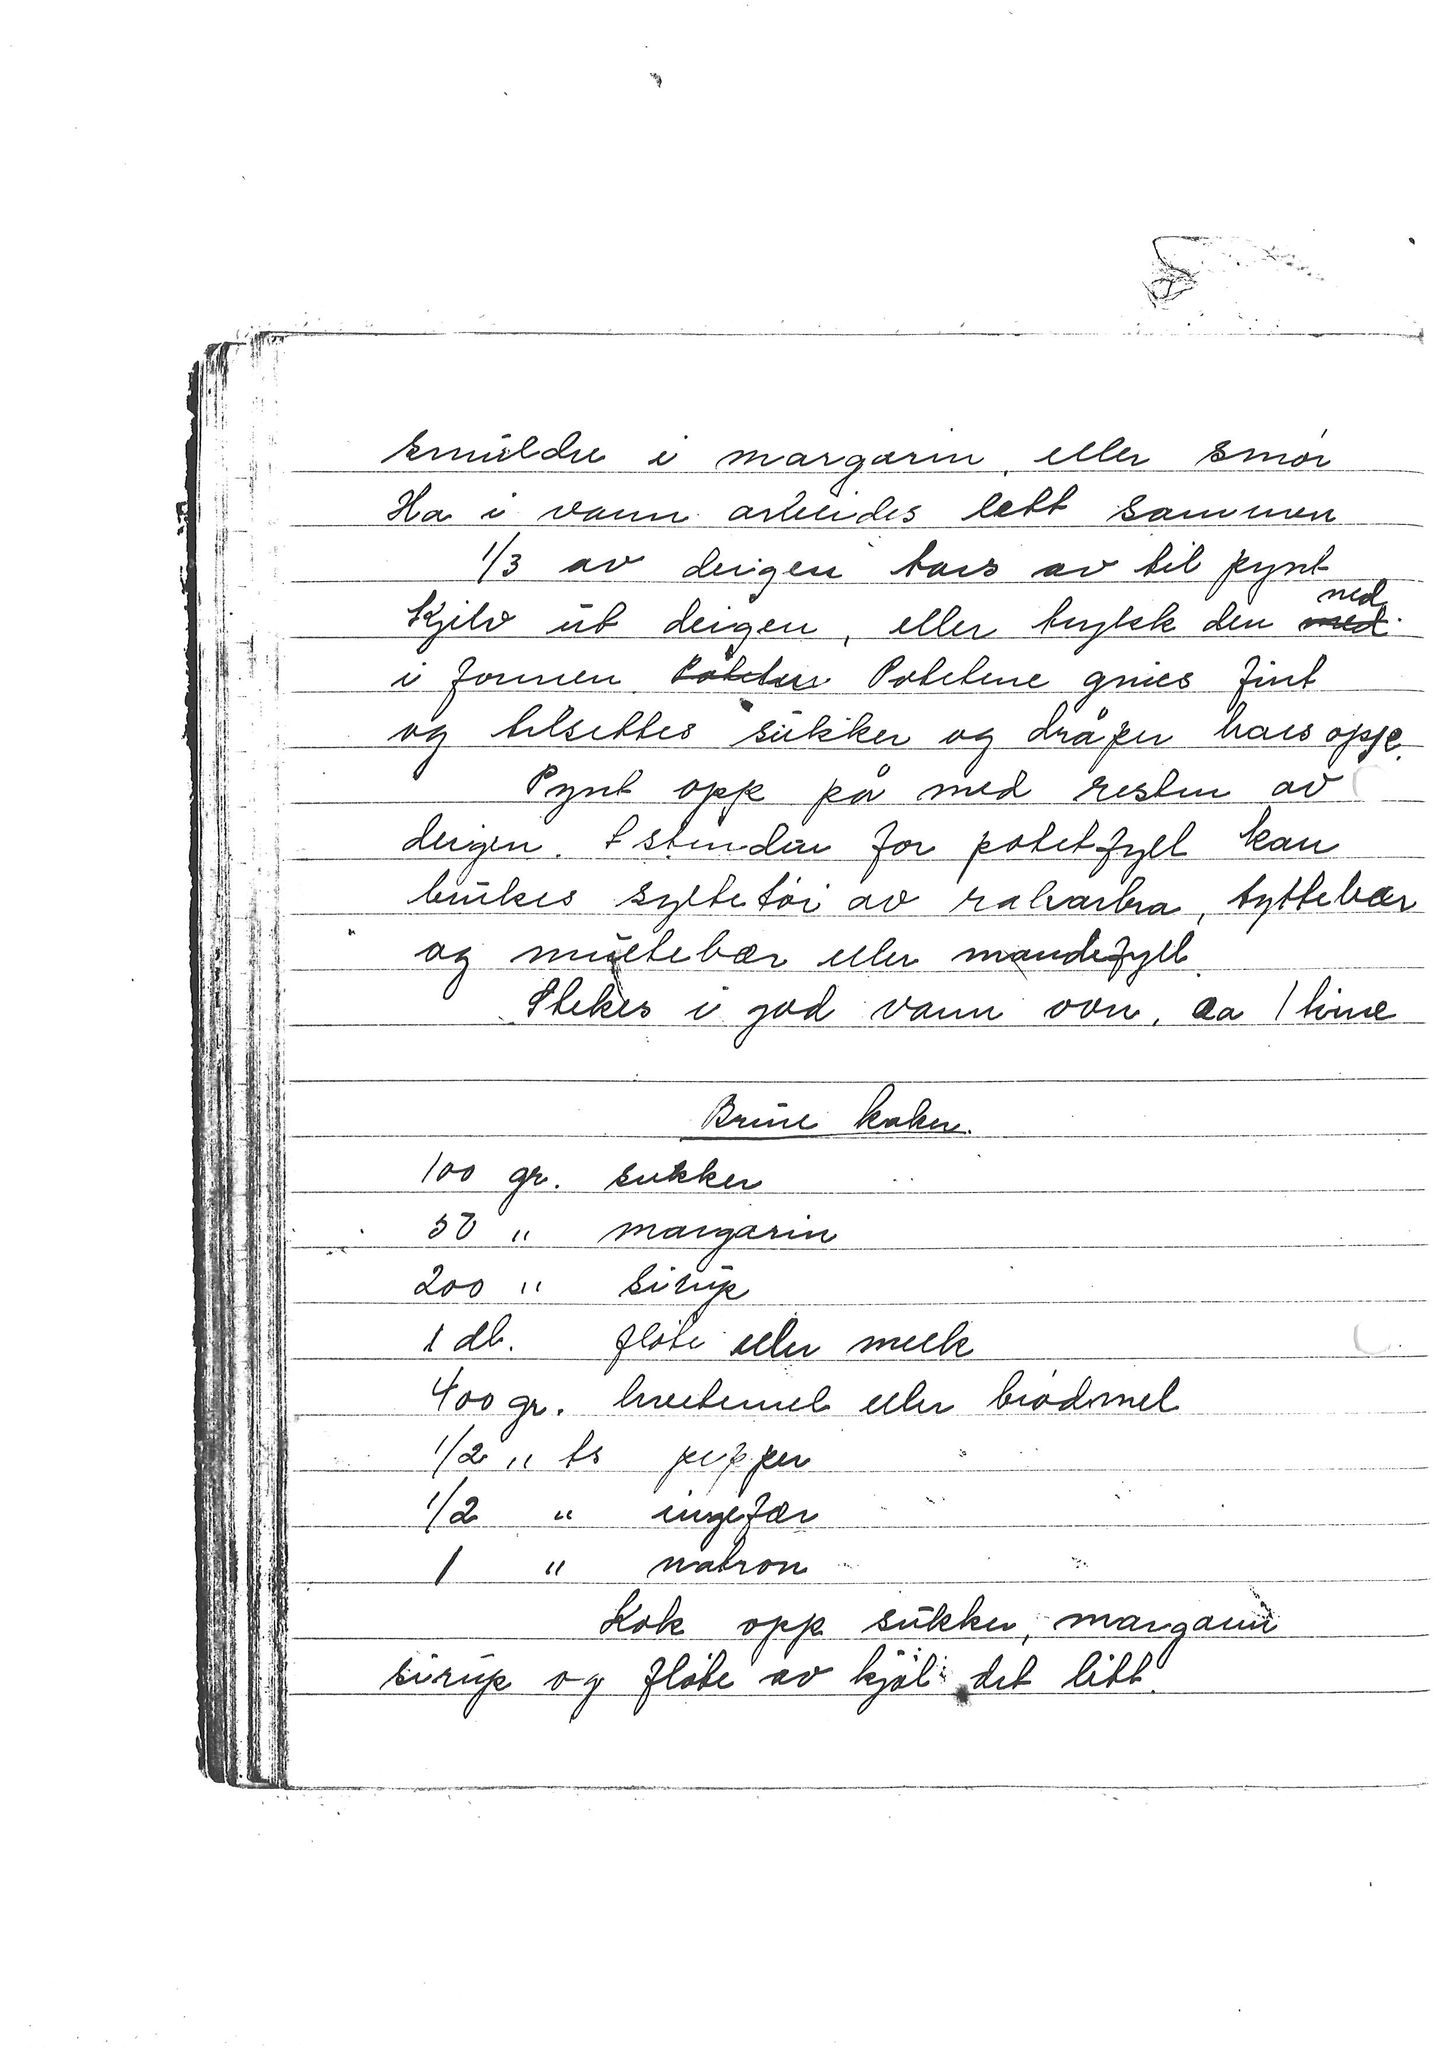 smuldre i margarin, eller smør
Ha i vann arbeides lett sammen
1/3 av deigen taes av til pynt
Kjelv ut deigen, eller trykk den med ned
i formen. Poteten Potetene gnies fint
og tilsettes sukker og dråper haes oppe.
Pynt opp på med resten av
deigen. Istenden for potetfyll kan
brukes syltetøi av rabarbra, tyttebær
og multebær eller mandefyll.
Stekes i god varm ovn, ca 1 time
Brune kaker.
100 gr. sukker
50 " margarin
200 " sirup
1 dl. fløte eller melk
400 gr. hvetemel eller brødmel
1/2 " ts pepper
1/2 " ingefær
1 " natron
Kok opp sukker, margarin
sirup og fløte av kjøl det litt.